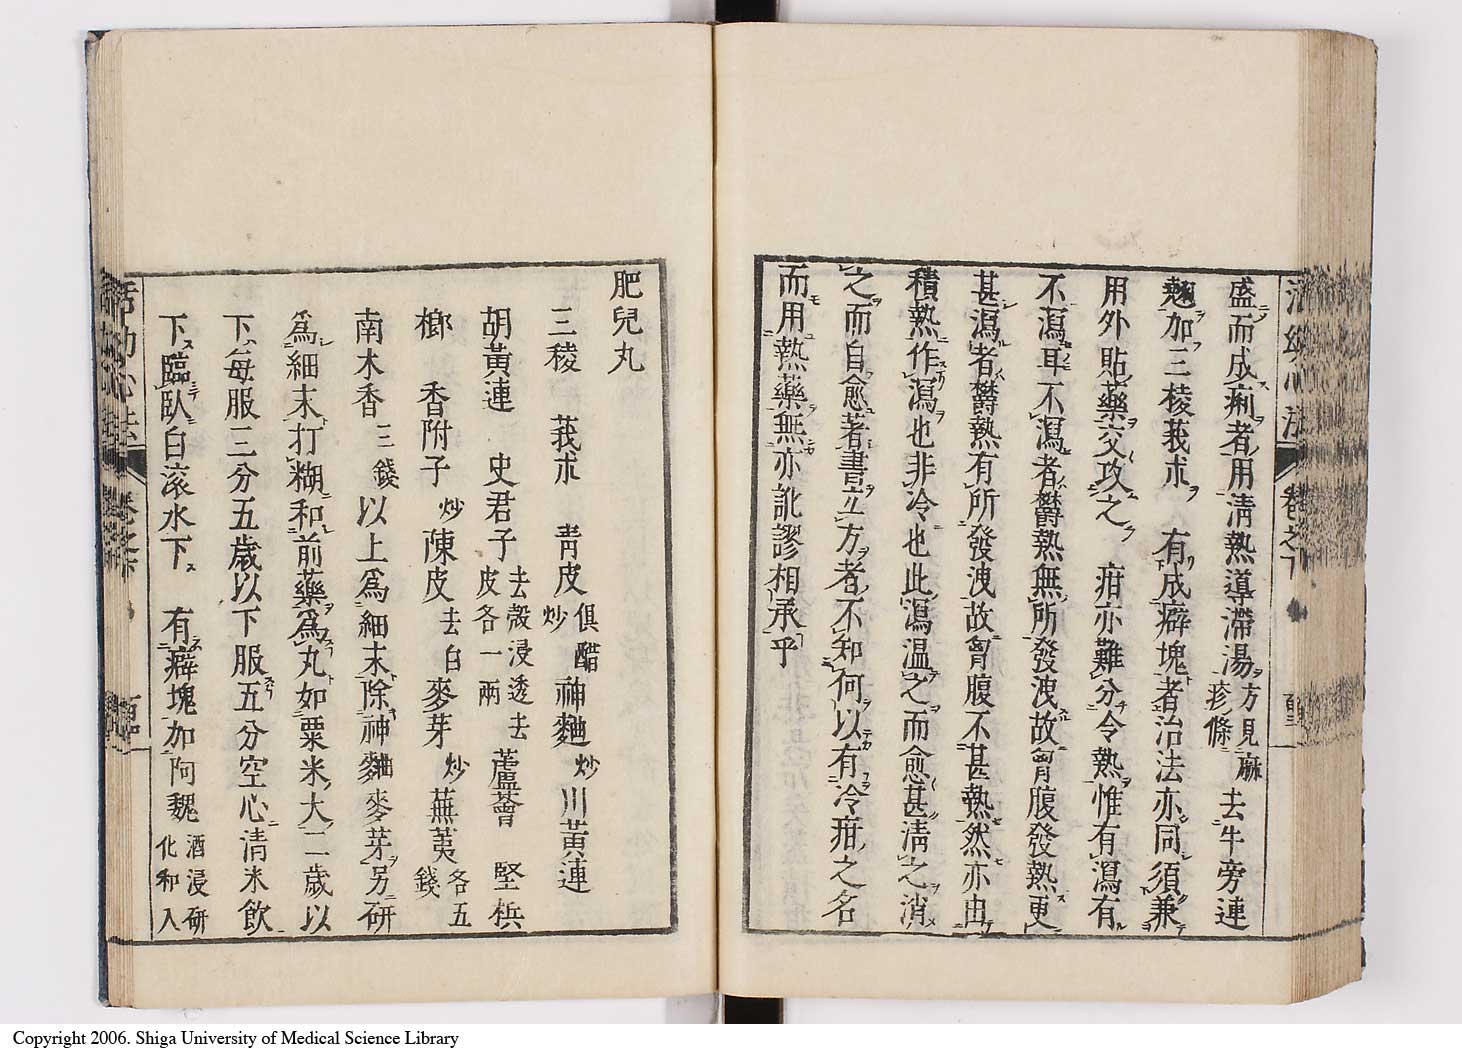 活幼心法 卷之下
盛而成痢者用淸熱導滯湯方見麻疹條去牛旁連
翹加三稜莪朮 有成癖塊者治法亦同須兼
用外貼藥交攻之 疳亦難分令熱惟有瀉有
不瀉耳不瀉者欝熱無所發洩故胷腹發熱更
甚瀉者欝熱有所發洩故胷腹不甚熱然亦由
積熱作瀉也非冷也此瀉温之而愈甚淸之消
之而自愈著書立方者不知何以有冷疳之名
而用熱藥無亦訛謬相承乎
肥兒丸
三稜 莪朮 靑皮俱醋炒 神麯炒 川黃連
胡黃連 史君子去殼浸透去皮各一兩 蘆薈 堅檳
榔 香附子炒 陳皮去白 麥芽炒 蕪荑各五錢
南木香三錢 以上爲細末除神麯麥芽另研
爲細末打糊和前藥爲丸如粟米大二歲以
下每服三分五歲以下服五分空心淸米飲
下臨臥白滾水下 有癖塊加阿魏酒浸研化和入
活幼心法 卷之下
Copyright 2006. Shiga University of Medical Science Library